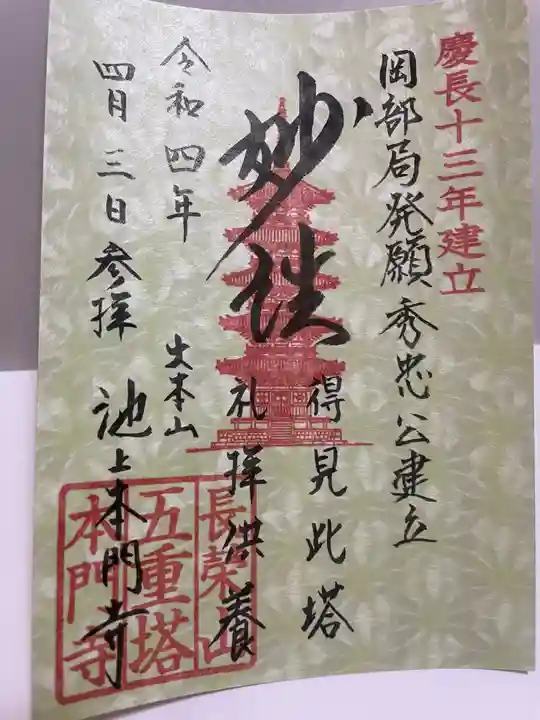 慶長十三年建立
岡部局発願秀忠公建立
妙法
得見此塔
礼拝供養
令和四年
四月三日参拝
大本山
池上本門寺
長栄山
五重塔
本門寺